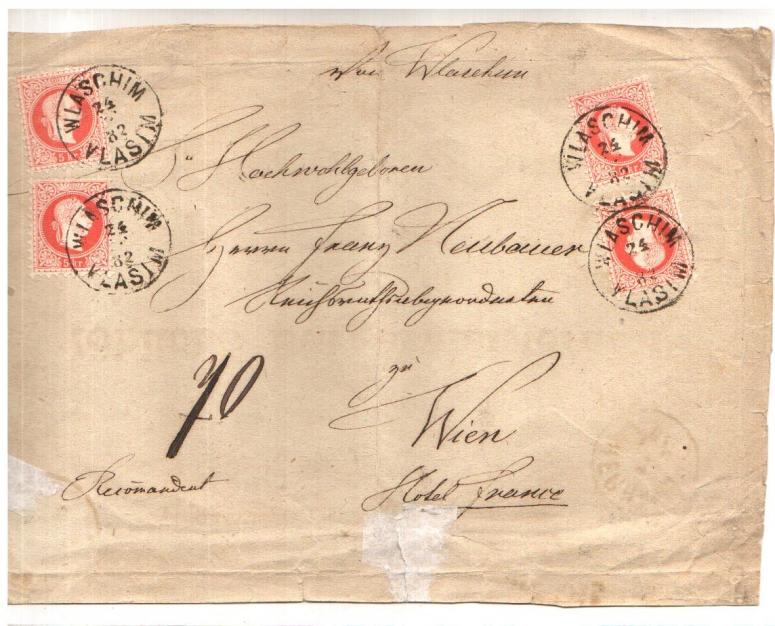 Von Wlaschim
WLASCHIM
24
82
VLASIM
5 kr
WLASCHIM
24
82
VLASIM
5 kr
WLASCHIM
24
82
VLASIM
WLASCHIM
24
82
VLASIM
Hochwohlgeboren
Herrn Franz Neubauer
Reichsrathsabgeordneten
zu
Wien
Hotel France
Recomandirt